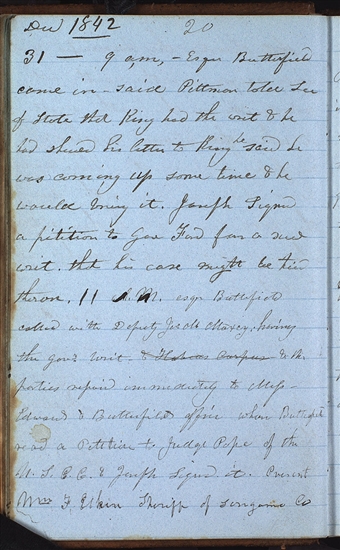 Dec 1842 20
31 — 9 a,m, - Esqr Butterfield
came in - said Pittman told Sec
of State that King had the writ & he
had shewed his letter to King he said he
was coming up some time & he
would bring it. Joseph Signed
a petition to Gov Ford for a new
writ. that his case might be tried
thereon. 11 A.M. esqr Butterfield
called with Deputy Maxey, having
the gov's writ. & Habeas Corpus & the
parties repaired immediately to Mess
Edward & Butterfields office when Butterfield
read a Petition to Judge Pope of the
U. S. C. C. & Joseph Signed it. Present
Wm F. Elkin Sheriff of Sangamo Co